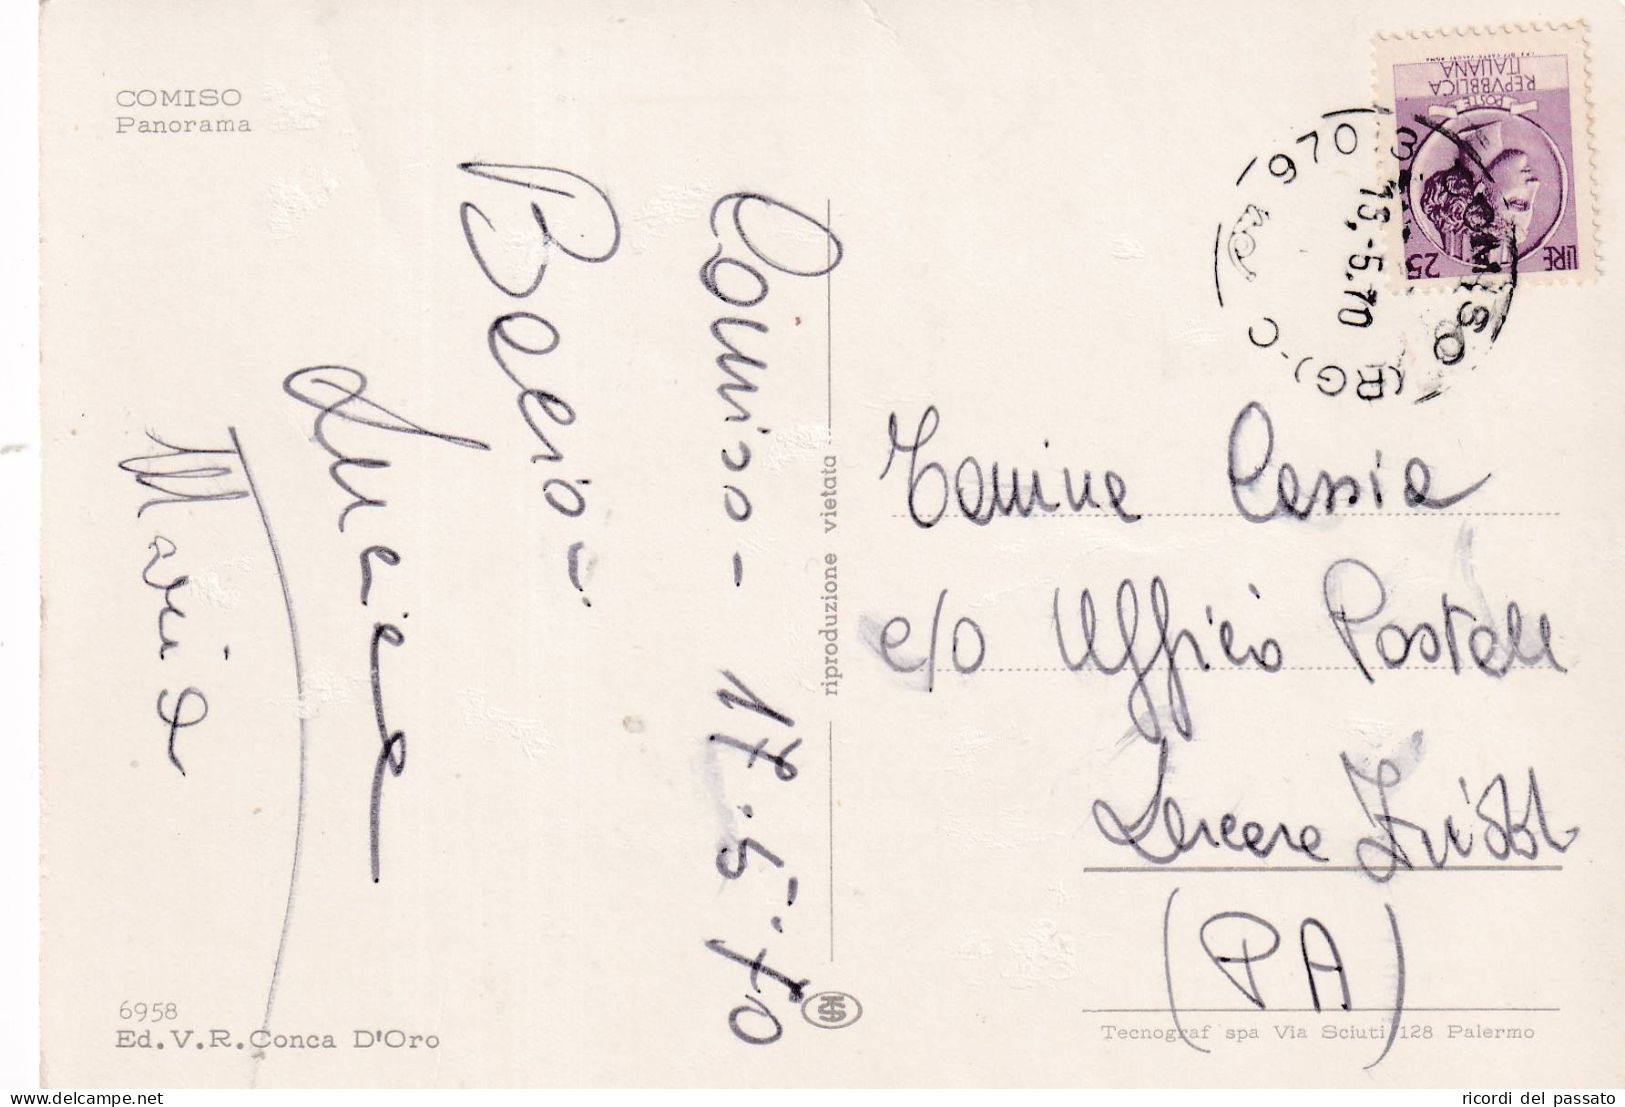 COMISO
Panorama
Comiso - 17.5.70
Baci
Maria
riproduzione vietata
LIRE 25
POSTE
REPVBBLICA
ITALIANA
COMISO
(RG)
13.-5.70
Cassia
c/o Ufficio Postale
Lercara Friddi
(PA)
6958
Ed.V.R.Conca D'Oro
Tecnograf spa Via Sciuti 128 Palermo
delcampe.net
ricordi del passato